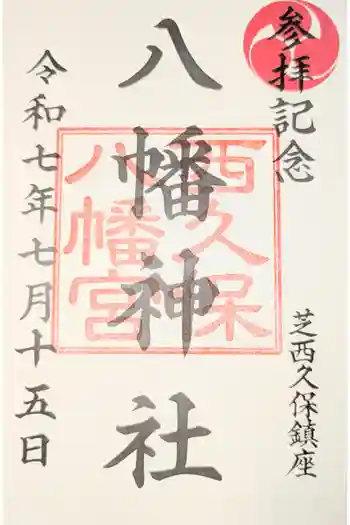 参拝記念
芝西久保鎮座
八幡神社
西久保
八幡宮
令和七年七月十五日